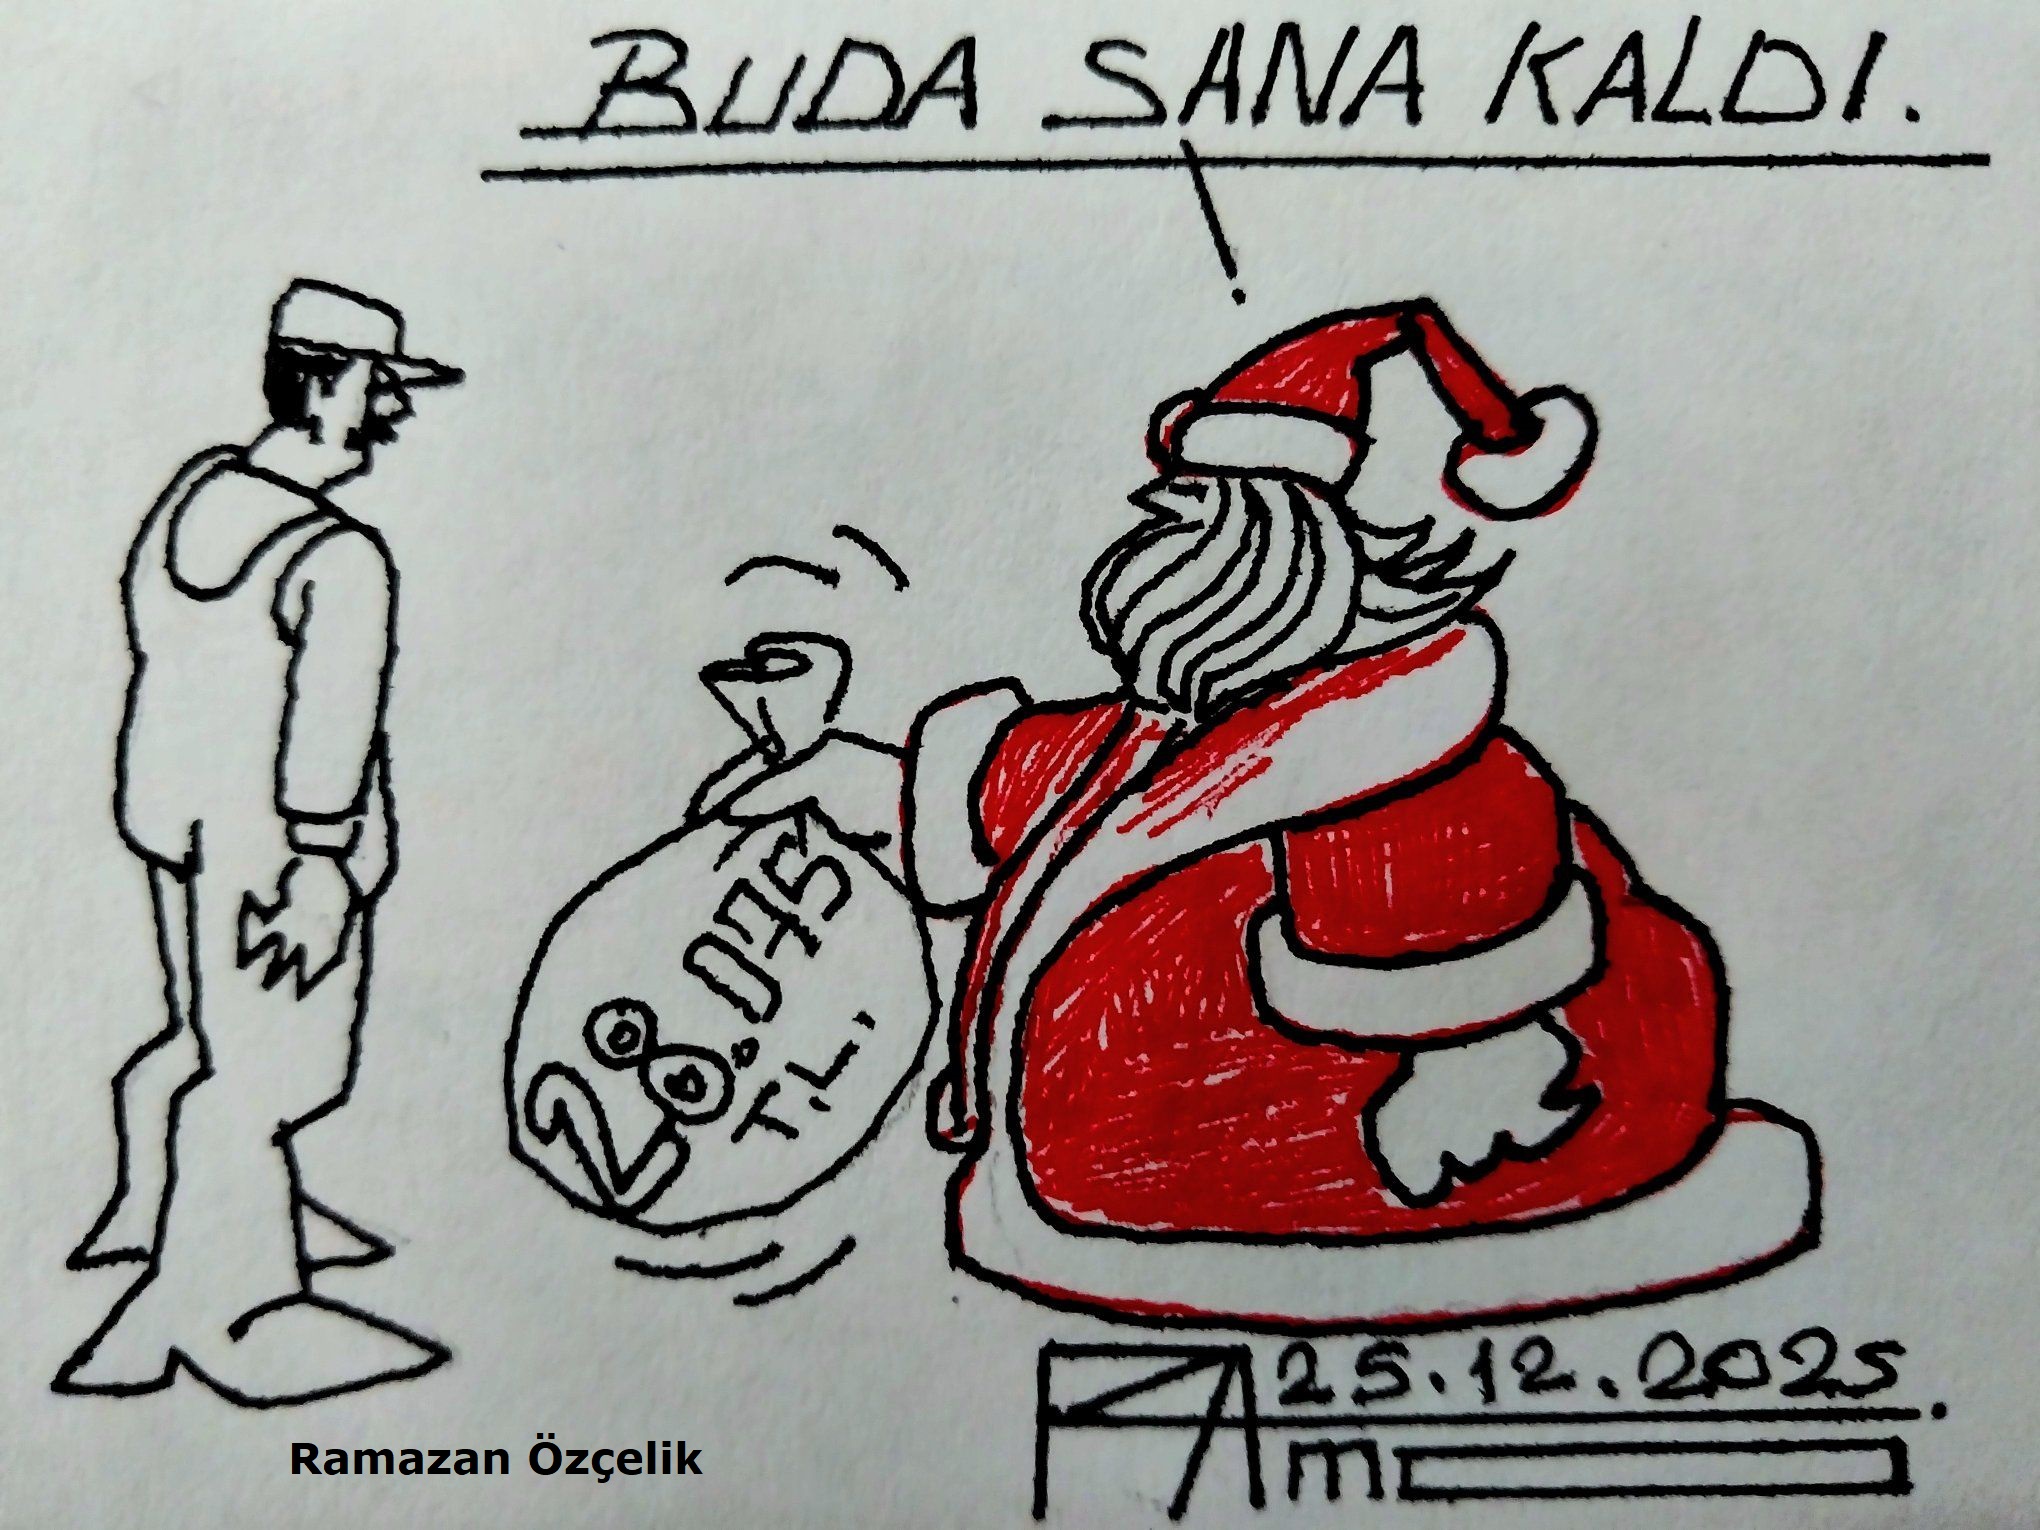 BUDA SANA KALDI.
28.075
T.L.
25.12.2025.
RAm
Ramazan Özçelik